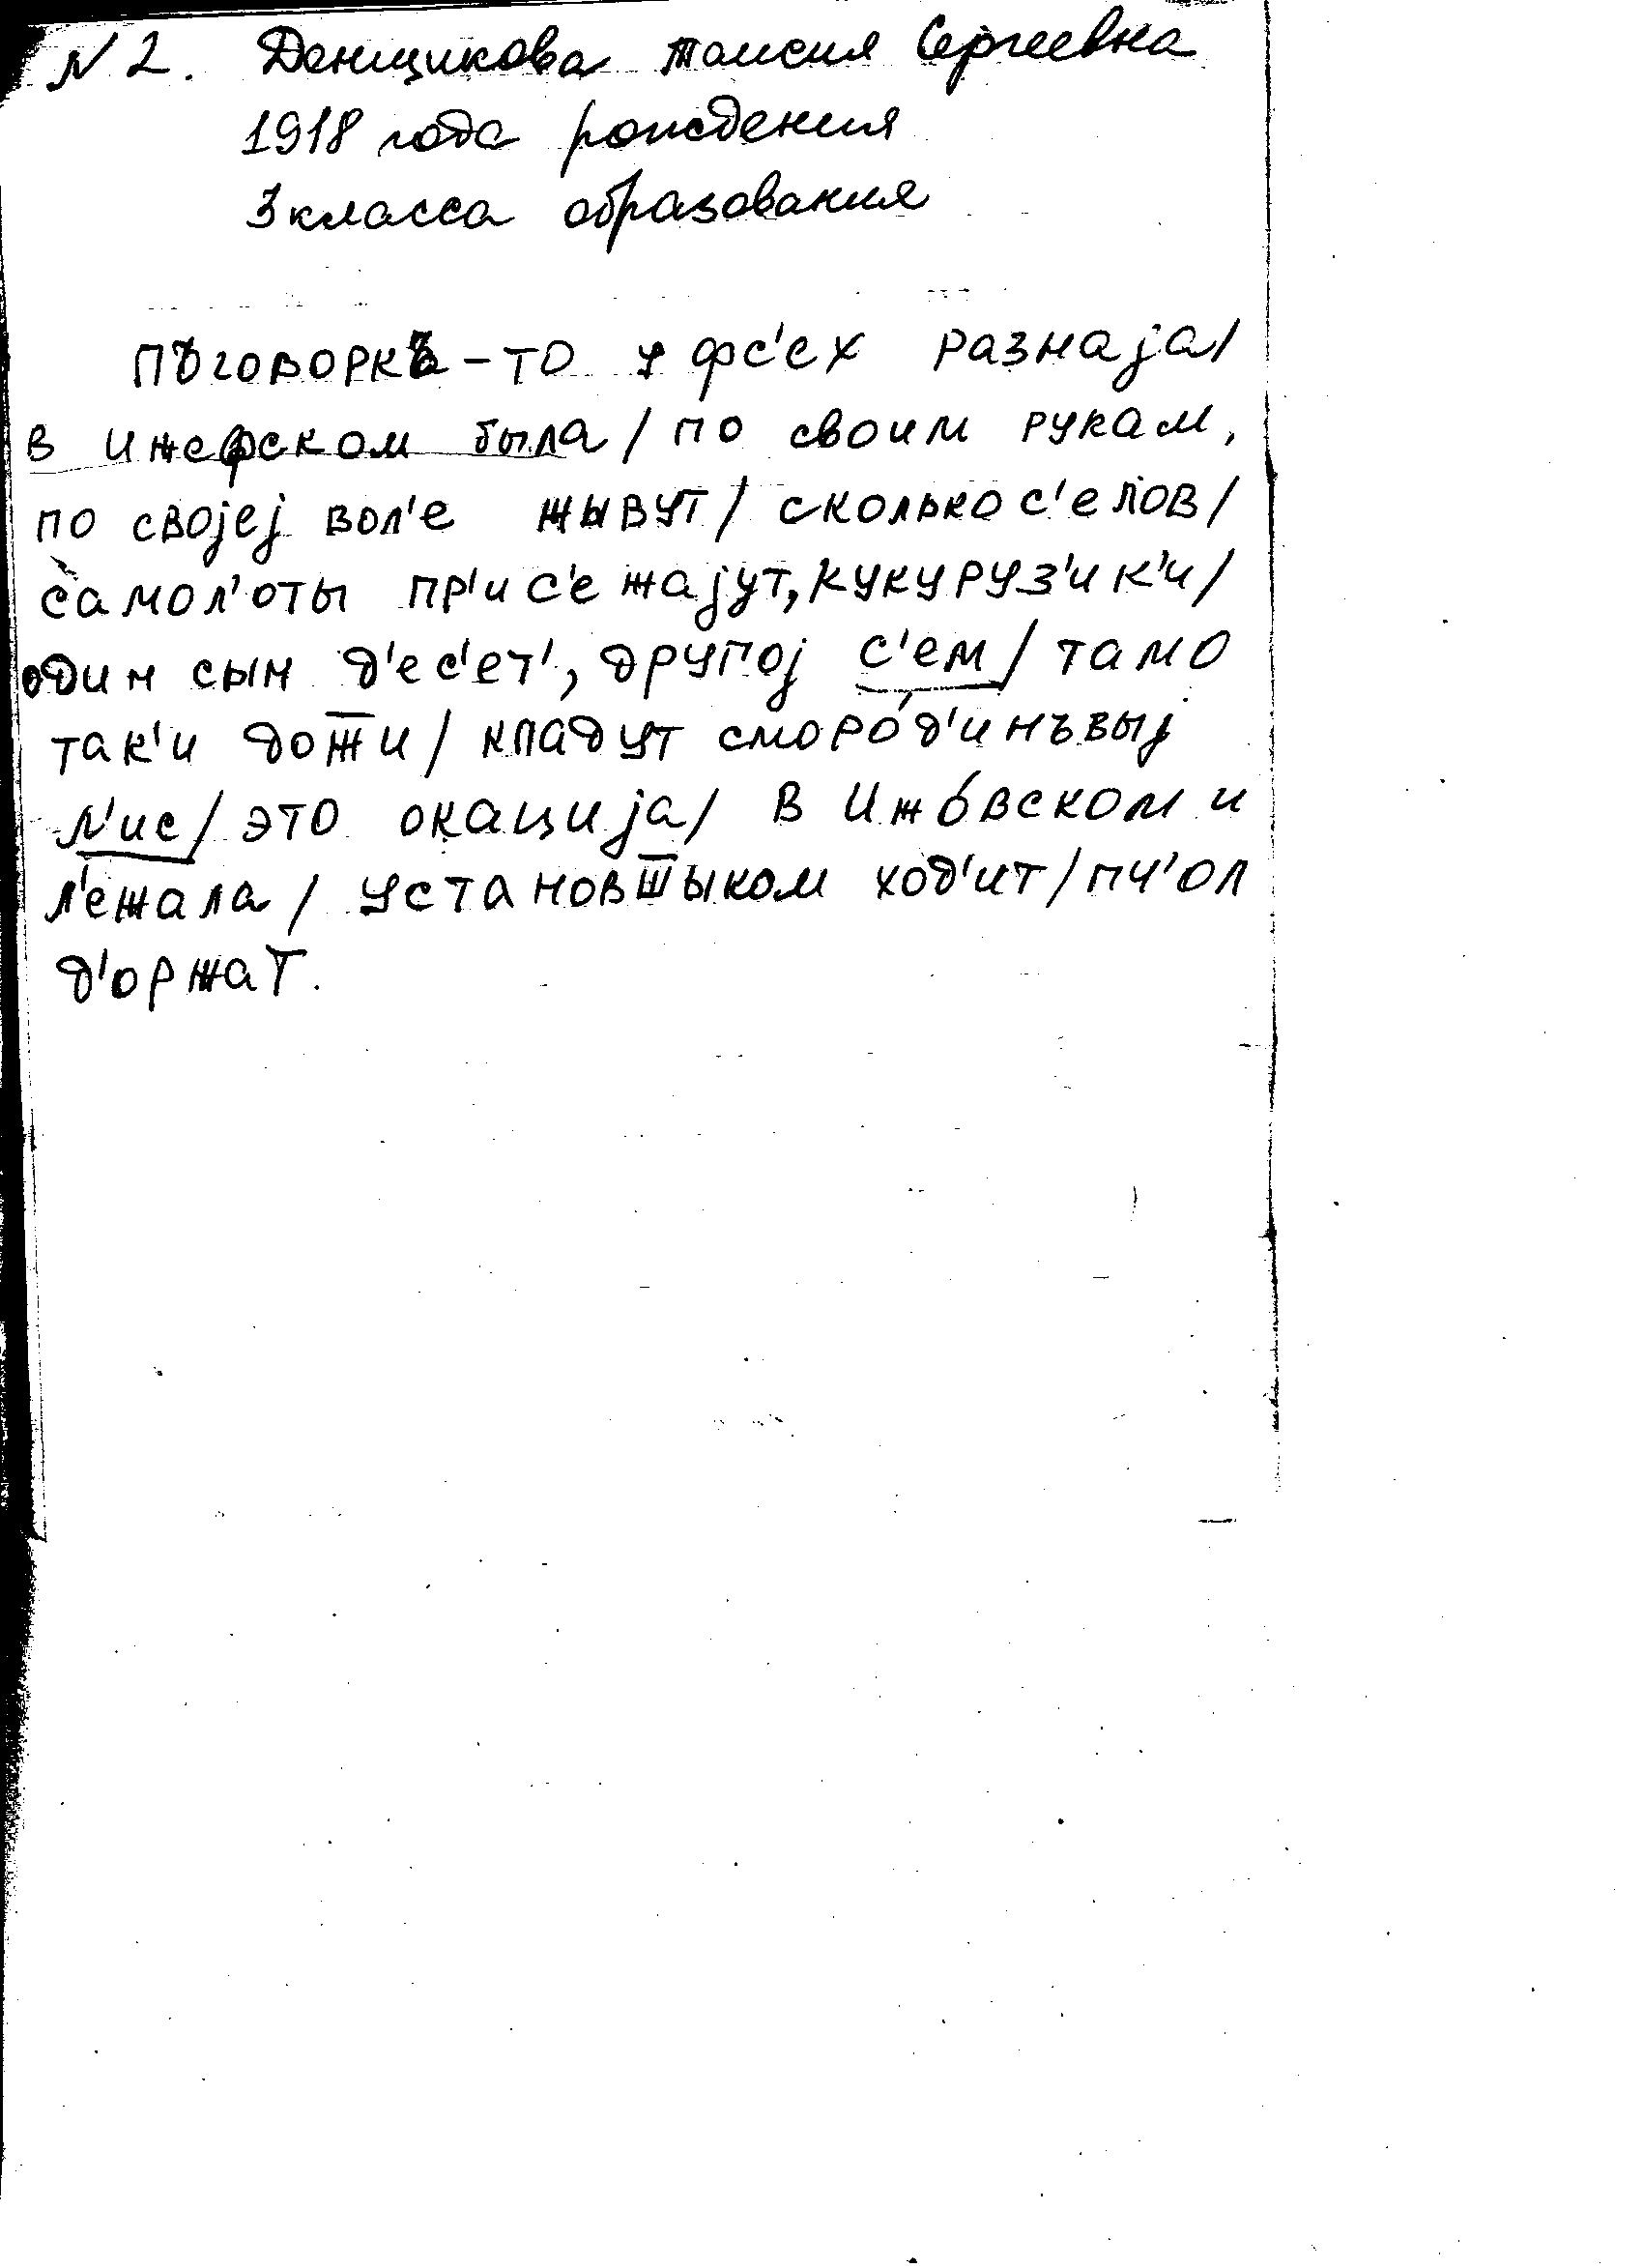 N 2. Денщикова Таисия Сергеевна
1918 года рождения
3 класса образования
пъговоркъ-то у фс'ех разнаjа/
в ижефском была/ по своим рукам,
по своjеj вол'е жывут/ сколько с'елов/
самол'оты пр'ис'ежаjут, кукуруз'ик'и/
один сын д'ес'ет', другоj с'ем/ тамо
так'и дож̅и/ кладут сморо́д'инъвыj
л'ис/ это окациjа/ в Ижо́вском и
л'ежала/ установш̅ыком ход'ит/ пч'ол
д'оржат.